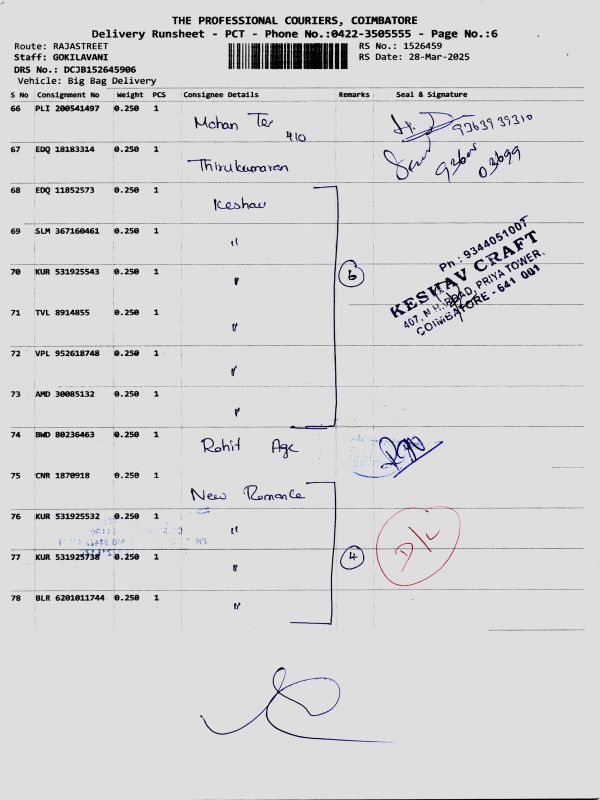 THE PROFESSIONAL COURIERS, COIMBATORE
Delivery Runsheet - PCT - Phone No.:0422-3505555 - Page No.:6
Route: RAJASTREET RS No.: 1526459
Staff: GOKILAVANI RS Date: 28-Mar-2025
DRS No.: DCJB152645906
Vehicle: Big Bag Delivery
S No Consignment No Weight PCS Consignee Details Remarks Seal & Signature
66 PLI 200541497 0.250 1 Mohan Tex 410 9363939310
67 EDQ 18183314 0.250 1 Thirukumaran 03699
68 EDQ 11852573 0.250 1 Keshav
69 SLM 367160461 0.250 1 "
70 KUR 531925543 0.250 1 " 6
Ph : 9344051007
KESHAV CRAFT
407, N.H. ROAD, PRIYA TOWER,
COIMBATORE - 641 001
71 TVL 8914855 0.250 1 "
72 VPL 952618748 0.250 1 "
73 AMD 30085132 0.250 1 "
74 BWD 80236463 0.250 1 Rohit Age
75 CNR 1870918 0.250 1 New Romance
76 KUR 531925532 0.250 1 " D/L
77 KUR 531925738 0.250 1 " 4
78 BLR 6201011744 0.250 1 "